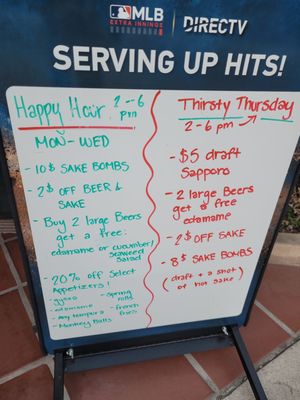 MLB
EXTRA INNINGS
DIRECTV
SERVING UP HITS!
Happy Hour 2-6
pm
MON-WED
- 10$ SAKE BOMBS
- 2$ OFF BEER &
SAKE
- Buy 2 large Beers
get a free
edamame or cucumber/
seaweed
salad
- 20% off Select
Appetizers!
- gyoza
- spring
rolls
- edamame
- Any tempura
- french
fries
- Monkey Balls
Thirsty Thursday
2-6pm
- $5 draft
Sapporo
- 2 large Beers
get a free
edamame
- 2$ OFF SAKE
- 8$ SAKE BOMBS
(draft + a shot
of hot sake)